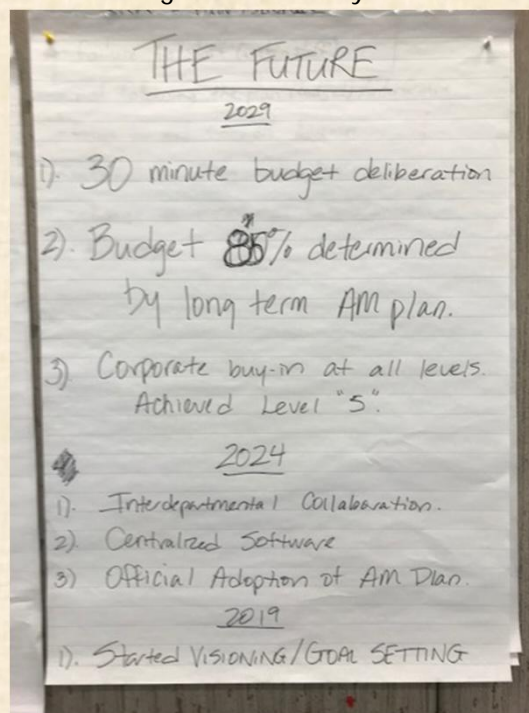 THE FUTURE
2029
1). 30 minute budget deliberation
2). Budget 85% determined
by long term AM plan.
3) Corporate buy-in at all levels.
Achieved Level "5".
2024
1). Interdepartmental Collaboration.
2). Centralized Software
3) Official Adoption of AM Plan.
2019
1). Started VISIONING/GOAL SETTING